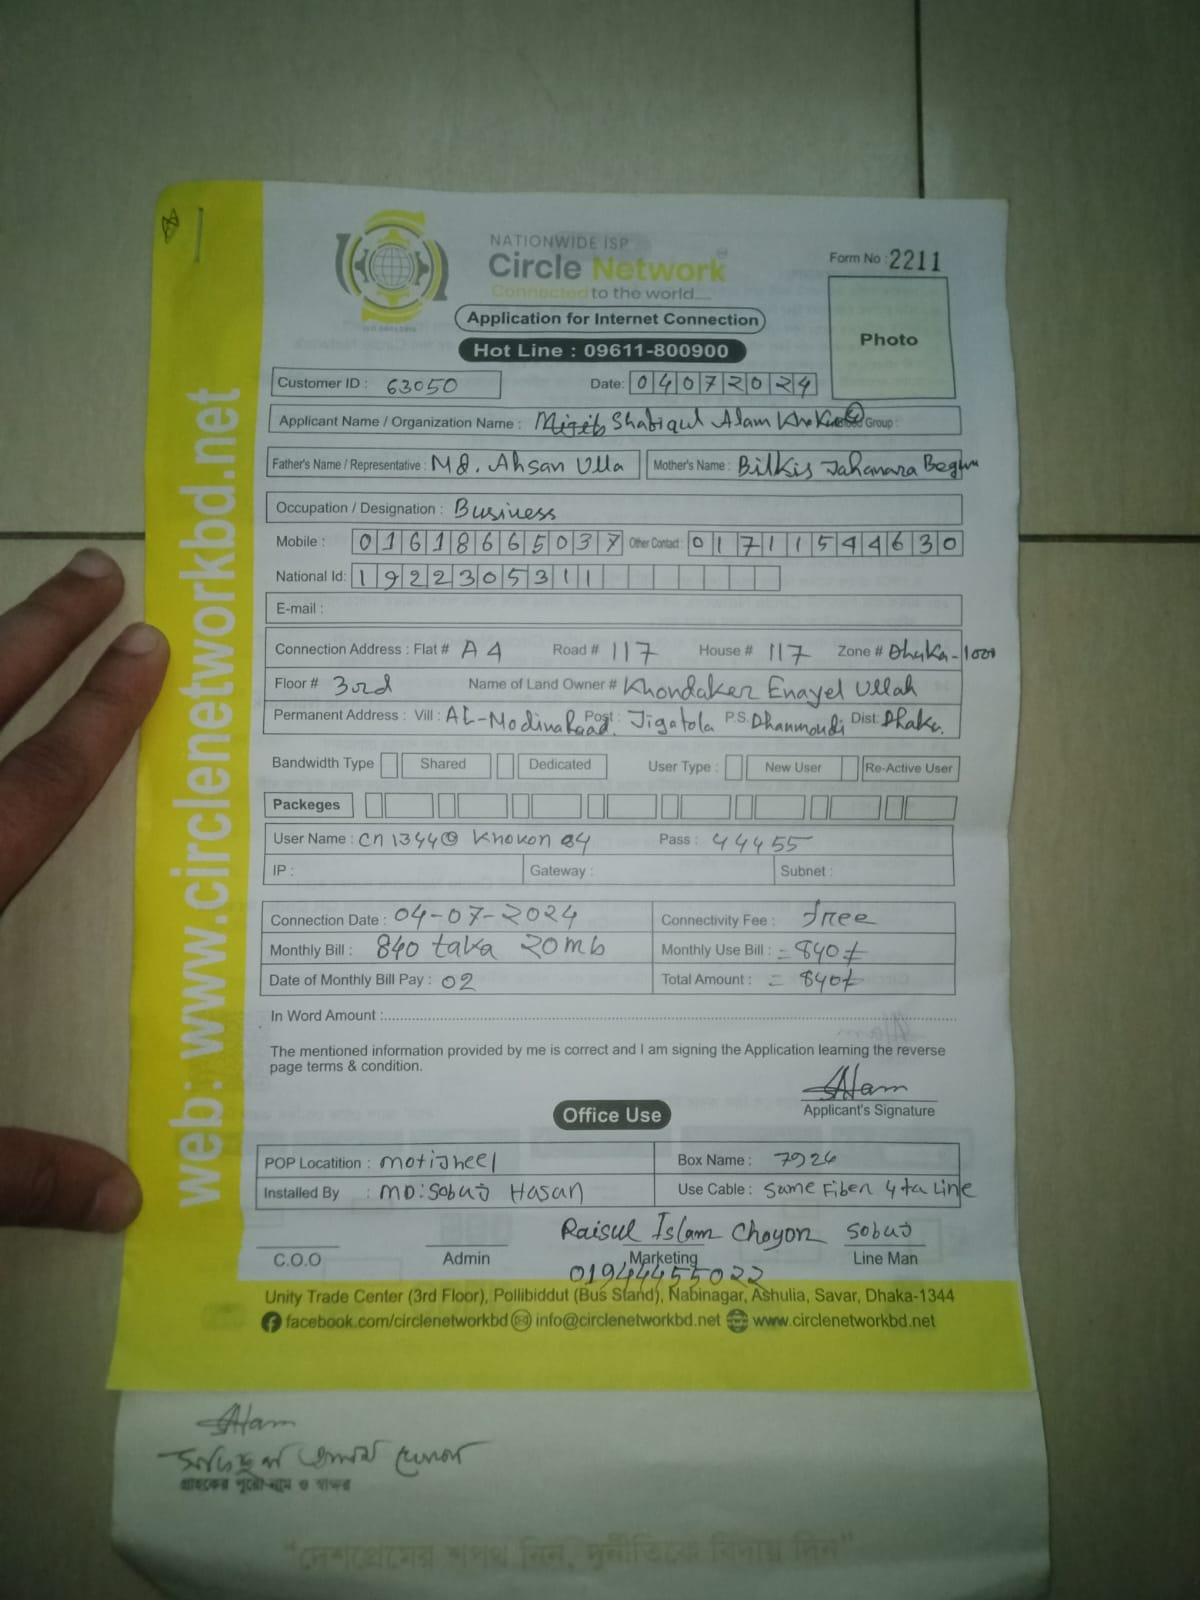 NATIONWIDE ISP
Circle Network
Connected to the world....
Form No : 2211
Application for Internet Connection
Hot Line : 09611-800900
Photo
Customer ID : 63050 Date: 04072024
Applicant Name / Organization Name : Shafiqul Alam Khokon Group :
Father's Name / Representative : MD. Ahsan Ulla Mother's Name : Bilkis Jahanara Begum
Occupation / Designation : Business
Mobile : 01618665037 Other Contact : 01711544630
National Id: 1922305311
E-mail :
Connection Address : Flat # A4 Road # 117 House # 117 Zone # Dhaka-1000
Floor # 3rd Name of Land Owner # Khondaker Enayel Ullah
Permanent Address : Vill : AL-Modina Road. Post : Jigatola P.S. Dhanmondi Dist: Dhaka.
Bandwidth Type Shared Dedicated User Type : New User Re-Active User
Packeges
User Name : cn1344@ Khokon 84 Pass : 44455
IP : Gateway : Subnet :
Connection Date : 04-07-2024 Connectivity Fee : free
Monthly Bill : 840 taka 20mb Monthly Use Bill : = 840/
Date of Monthly Bill Pay : 02 Total Amount : = 840/
In Word Amount :
The mentioned information provided by me is correct and I am signing the Application learning the reverse
page terms & condition.
Alam
Applicant's Signature
Office Use
POP Locatition : motijheel Box Name : 7924
Installed By : MD: Sobuj Hasan Use Cable : Same Fiber 4 ta Line
Raisul Islam Choyon Sobuj
C.O.O Admin Marketing Line Man
01944455022
Unity Trade Center (3rd Floor), Pollibiddut (Bus Stand), Nabinagar, Ashulia, Savar, Dhaka-1344
facebook.com/circlenetworkbd info@circlenetworkbd.net www.circlenetworkbd.net
web: www.circlenetworkbd.net
Alam
গ্রাহকের পুরো নাম ও স্বাক্ষর
"দেশপ্রেমের শপথ নিন, দুর্নীতিকে বিদায় দিন"